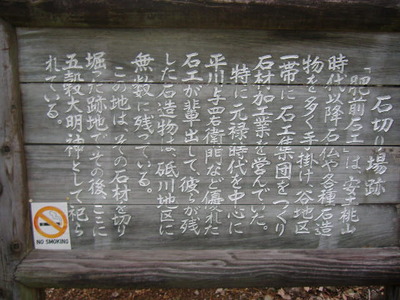 石切り場跡
「肥前石工」は、安土桃山
時代以降石仏や各種石造
物を多く手掛け、谷地区
一帯に石工集団をつくり
石材加工業を営んでいた。
特に元禄時代を中心に
平川与四右衛門など優れた
石工が輩出して、彼らが残
した石造物は、砥川地区に
無数に残っている。
この地は、その石材を切り
掘った跡地で、その後、ここに
五穀大明神として祀ら
れている。
NO SMOKING